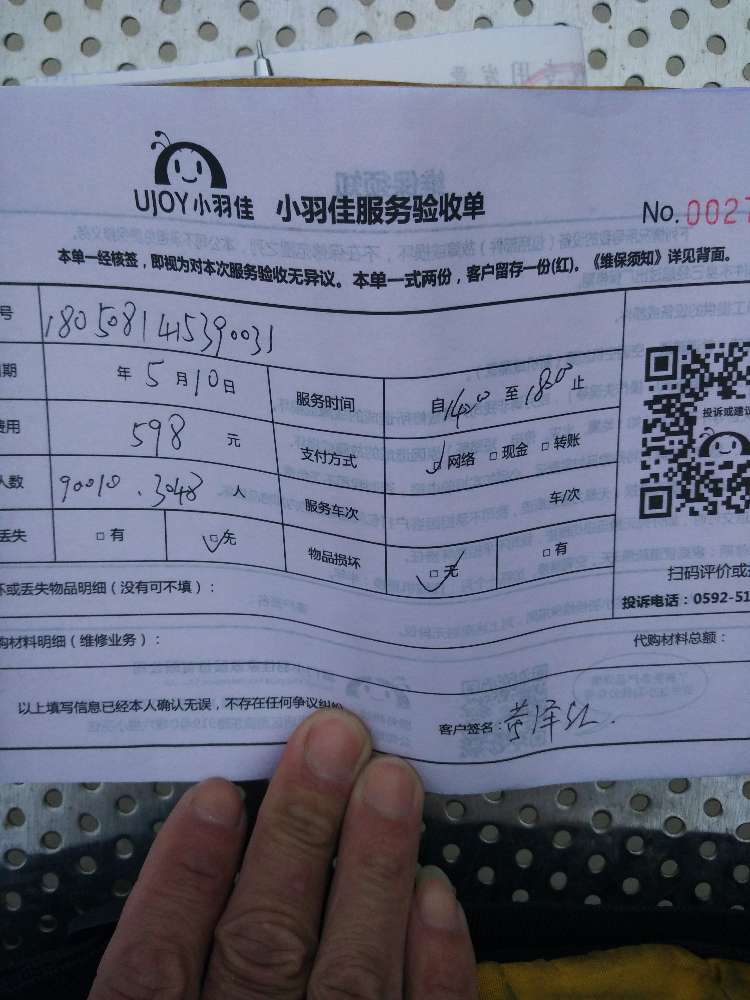 专用发票
UJOY小羽佳 小羽佳服务验收单
No. 0027
本单一经核签，即视为对本次服务验收无异议。本单一式两份，客户留存一份(红)。《维保须知》详见背面。
号 180508145390031
期 年 5 月 10 日 服务时间 自 1400 至 1800 止
费用 598 元 支付方式 □ 网络 □ 现金 □ 转账
人数 90010.3048 人 服务车次 车/次
丢失 □ 有 □ 无 物品损坏 □ 无 □ 有
投诉或建议
扫码评价或
投诉电话：0592-51
坏或丢失物品明细（没有可不填）：
购材料明细（维修业务）： 代购材料总额：
以上填写信息已经本人确认无误，不存在任何争议纠纷
客户签名：